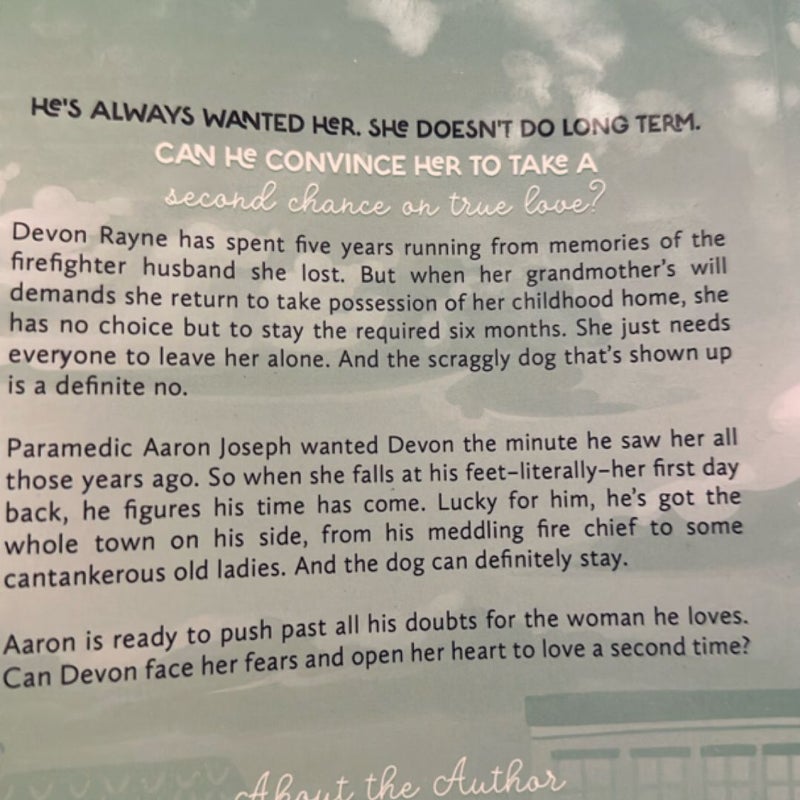 He'S ALWAYS WANTED HeR. SHe DOESN'T DO LONG TERM.
CAN He CONVINCE HeR TO TAKe A
second chance on true love?
Devon Rayne has spent five years running from memories of the
firefighter husband she lost. But when her grandmother's will
demands she return to take possession of her childhood home, she
has no choice but to stay the required six months. She just needs
everyone to leave her alone. And the scraggly dog that's shown up
is a definite no.
Paramedic Aaron Joseph wanted Devon the minute he saw her all
those years ago. So when she falls at his feet–literally–her first day
back, he figures his time has come. Lucky for him, he's got the
whole town on his side, from his meddling fire chief to some
cantankerous old ladies. And the dog can definitely stay.
Aaron is ready to push past all his doubts for the woman he loves.
Can Devon face her fears and open her heart to love a second time?
About the Author